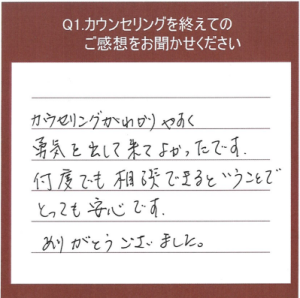 Q1.カウンセリングを終えての
ご感想をお聞かせください
カウセリングがわかりやすく
勇気を出して来てよかったです.
付度でも相張できるということで
とっても安心です.
ありがとうございました。